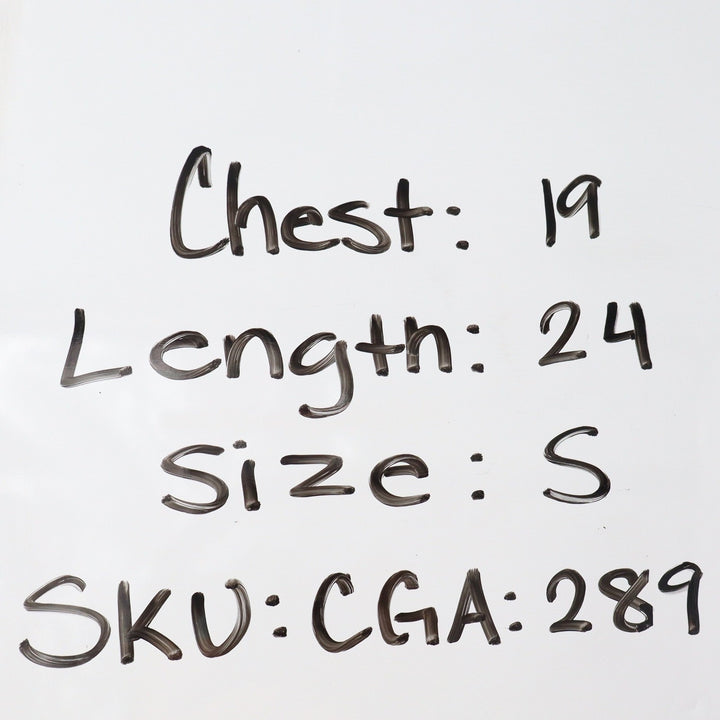 Chest: 19
Length: 24
Size: S
SKU: CGA: 289